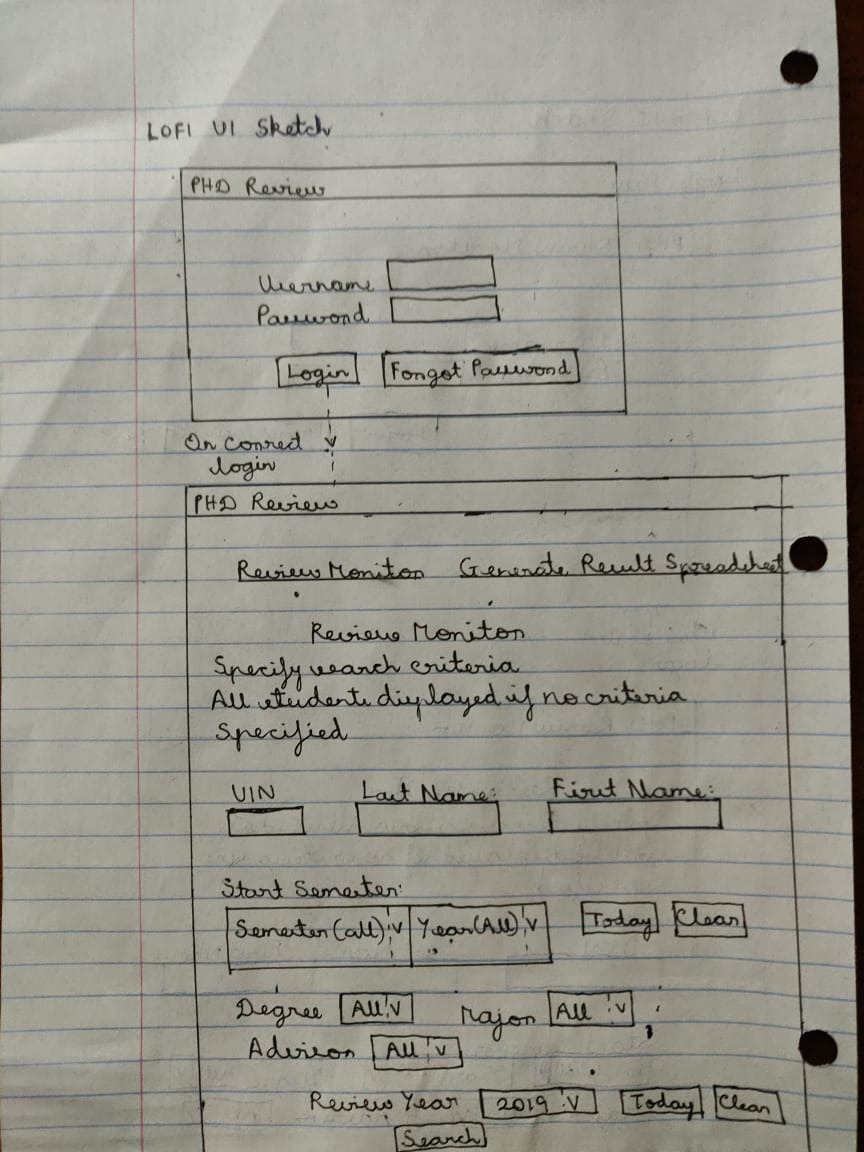 LOFI UI Sketch
PHD Review
Username
Password
Login Forgot Password
On correct
login
PHD Review
Review Monitor Generate Result Spreadsheet
Review Monitor
Specify search criteria
All students displayed if no criteria
Specified
UIN Last Name: First Name:
Start Semester:
Semester (all) V Year (All) V Today Clear
Degree All V Major All V
Advisor All V
Review Year 2019 V Today Clear
Search